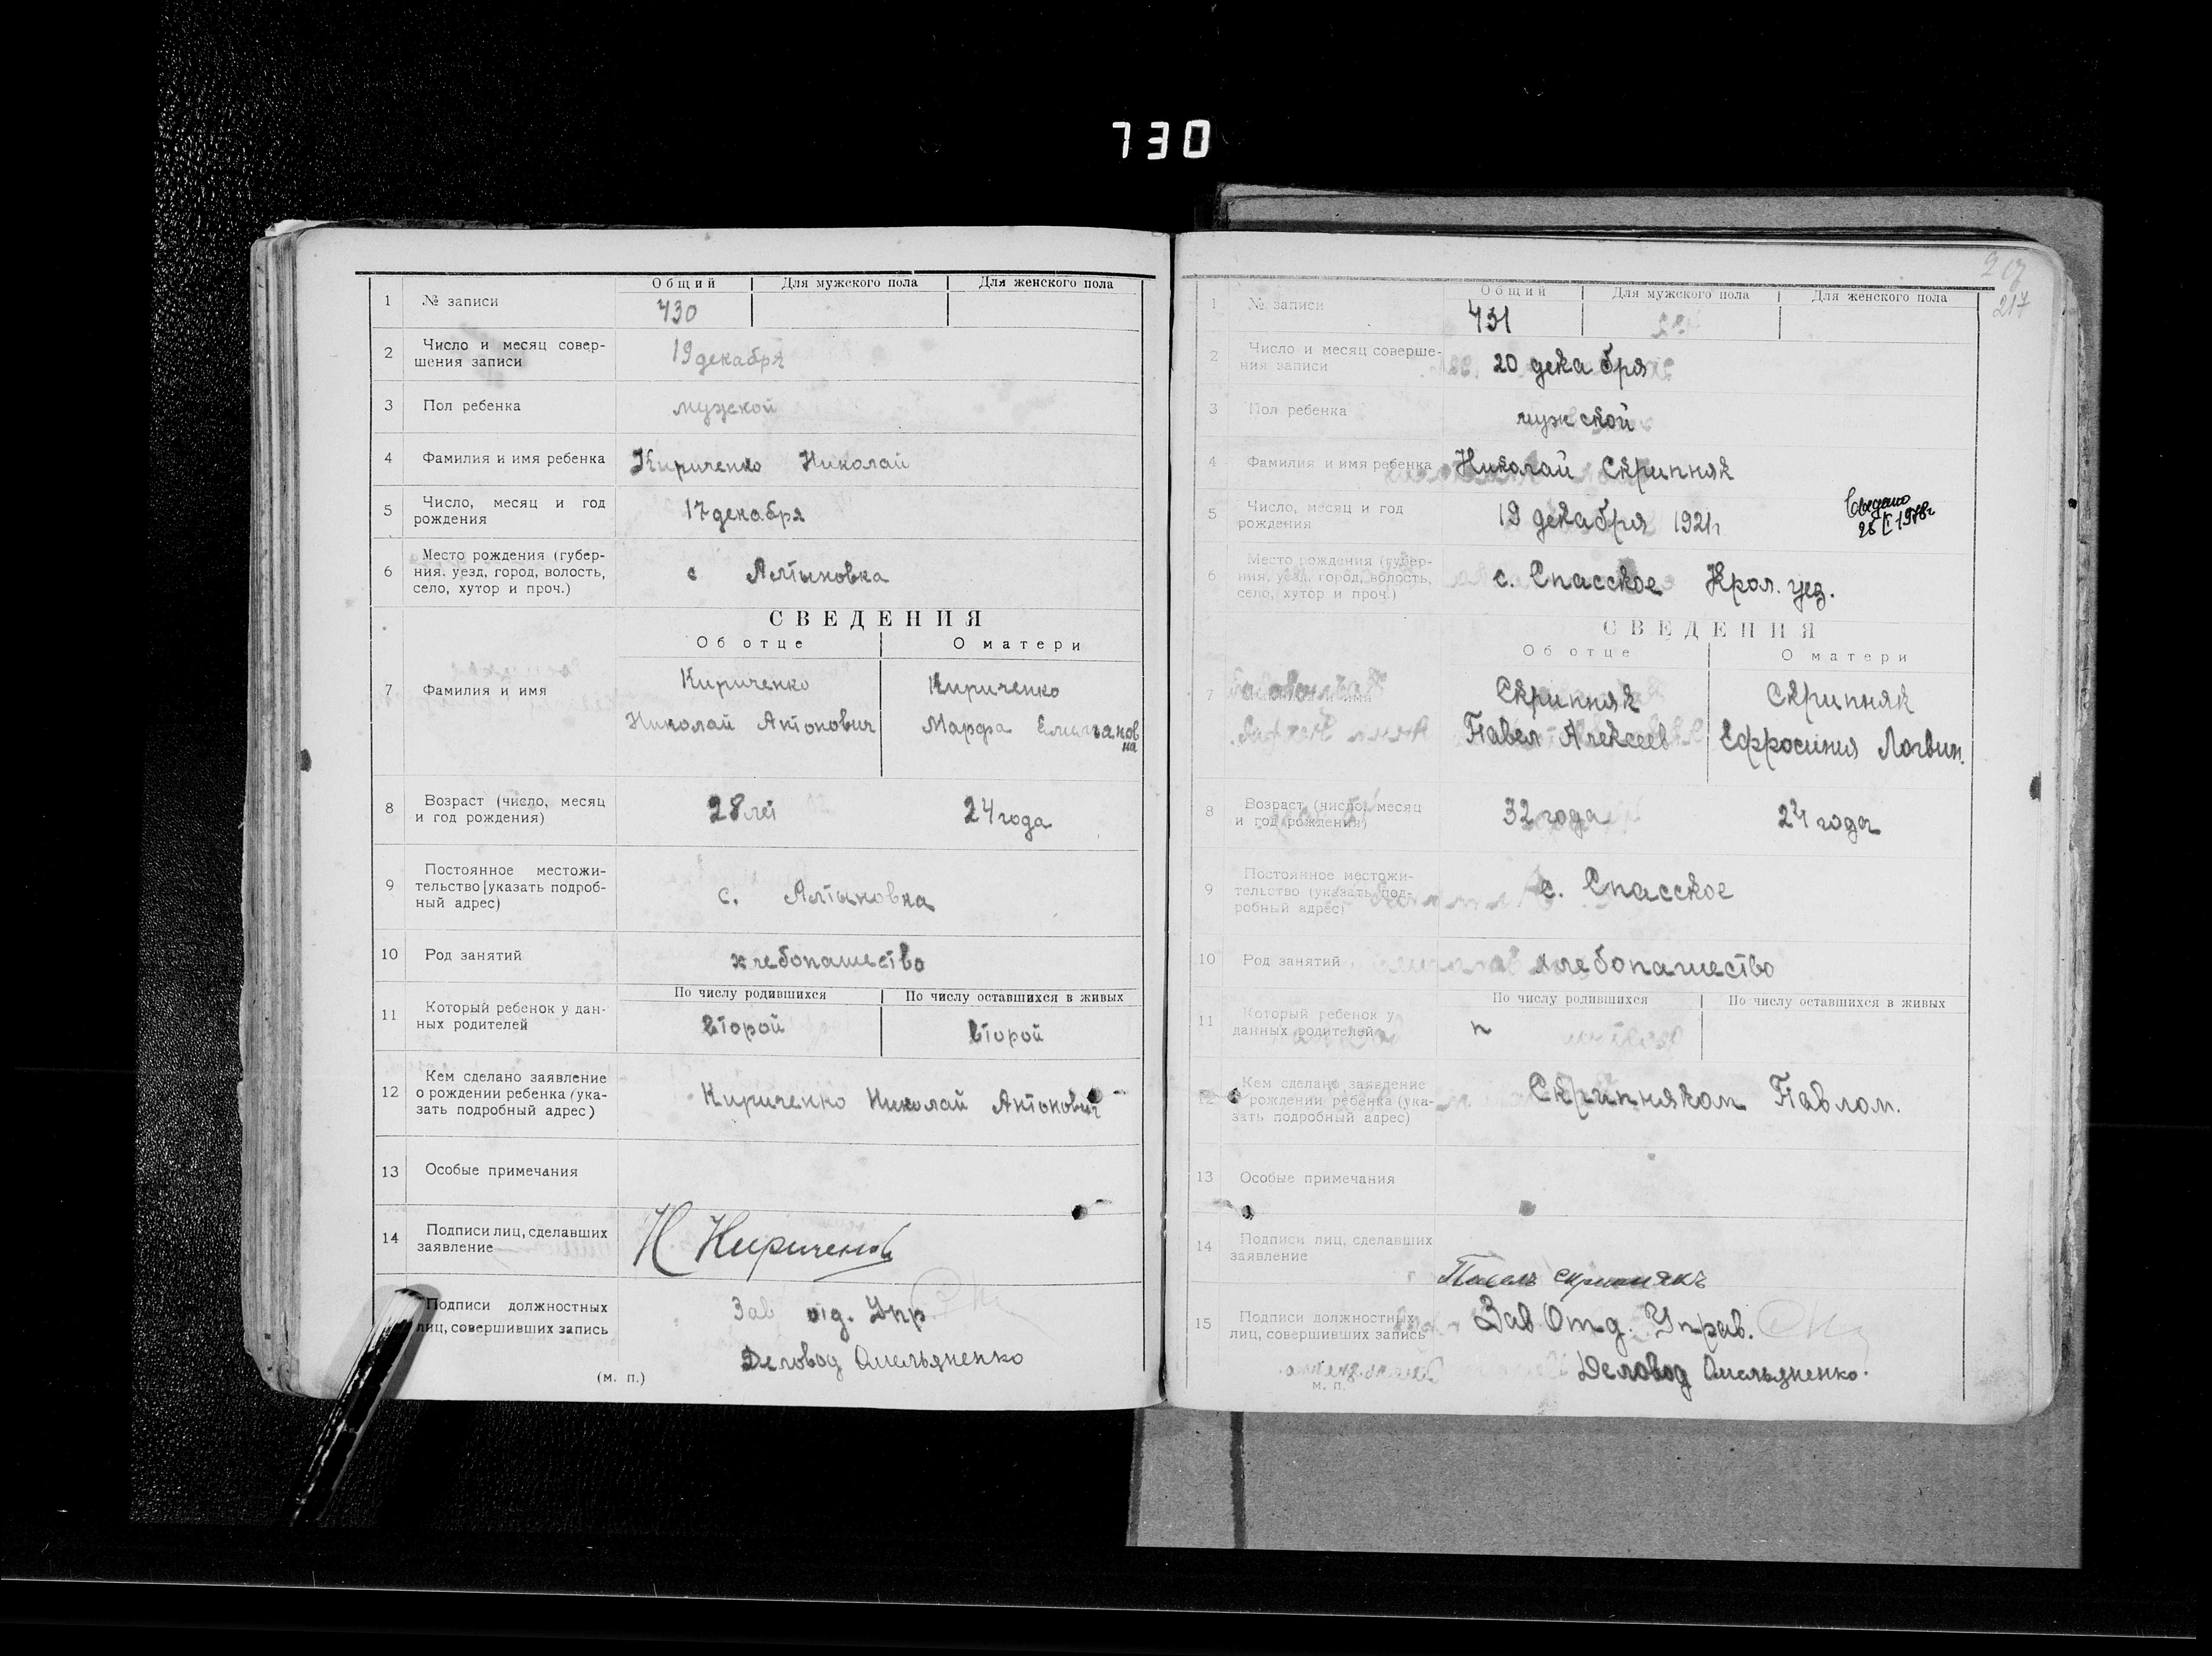 730
Общий Для мужского пола Для женского пола
1 № записи 430
2 Число и месяц совер-
шения записи 19 декабря
3 Пол ребенка мужской
4 Фамилия и имя ребенка Кириченко Николай
5 Число, месяц и год
рождения 17 декабря
6 Место рождения (губер-
ния, уезд, город, волость,
село, хутор и проч.) с Алтыновка
СВЕДЕНИЯ
Об отце О матери
7 Фамилия и имя Кириченко Кириченко
Николай Антонович Марфа Емельянов
на
8 Возраст (число, месяц
и год рождения) 28 лет 24 года
9 Постоянное местожи-
тельство [указать подроб-
ный адрес) с. Алтыновка
10 Род занятий хлебопашество
По числу родившихся По числу оставшихся в живых
11 Который ребенок у дан-
ных родителей второй второй
12 Кем сделано заявление
о рождении ребенка (ука-
зать подробный адрес) Кириченко Николай Антонович
13 Особые примечания
14 Подписи лиц, сделавших
заявление Н Кириченко
Подписи должностных
лиц, совершивших запись Зав отд. Упр
Деловод Омельяненко
(м. п.)
217
Общий Для мужского пола Для женского пола
1 № записи 431
2 Число и месяц соверше-
ния записи 20 декабря
3 Пол ребенка мужской
4 Фамилия и имя ребенка Николай Скрипняк
5 Число, месяц и год
рождения 19 декабря 1921г
6 Место рождения (губер-
ния, уезд, город, волость,
село, хутор и проч.) с. Спасское Крол. уез.
СВЕДЕНИЯ
Об отце О матери
7 Фамилия и имя Скрипняк Скрипняк
Павел Алексеев Ефросиния Логвин.
8 Возраст (число, месяц
и год рождения) 32 года 24 года
9 Постоянное местожи-
тельство (указать под-
робный адрес) с. Спасское
10 Род занятий хлебопашество
По числу родившихся По числу оставшихся в живых
11 Который ребенок у
данных родителей п
12 Кем сделано заявление
о рождении ребенка (ука-
зать подробный адрес) Скрипняком Павлом.
13 Особые примечания
14 Подписи лиц, сделавших
заявление
Павелъ Скрипнякъ
15 Подписи должностных
лиц, совершивших запись Зав Отд. Управ.
Деловод Омельяненко.
м. п.